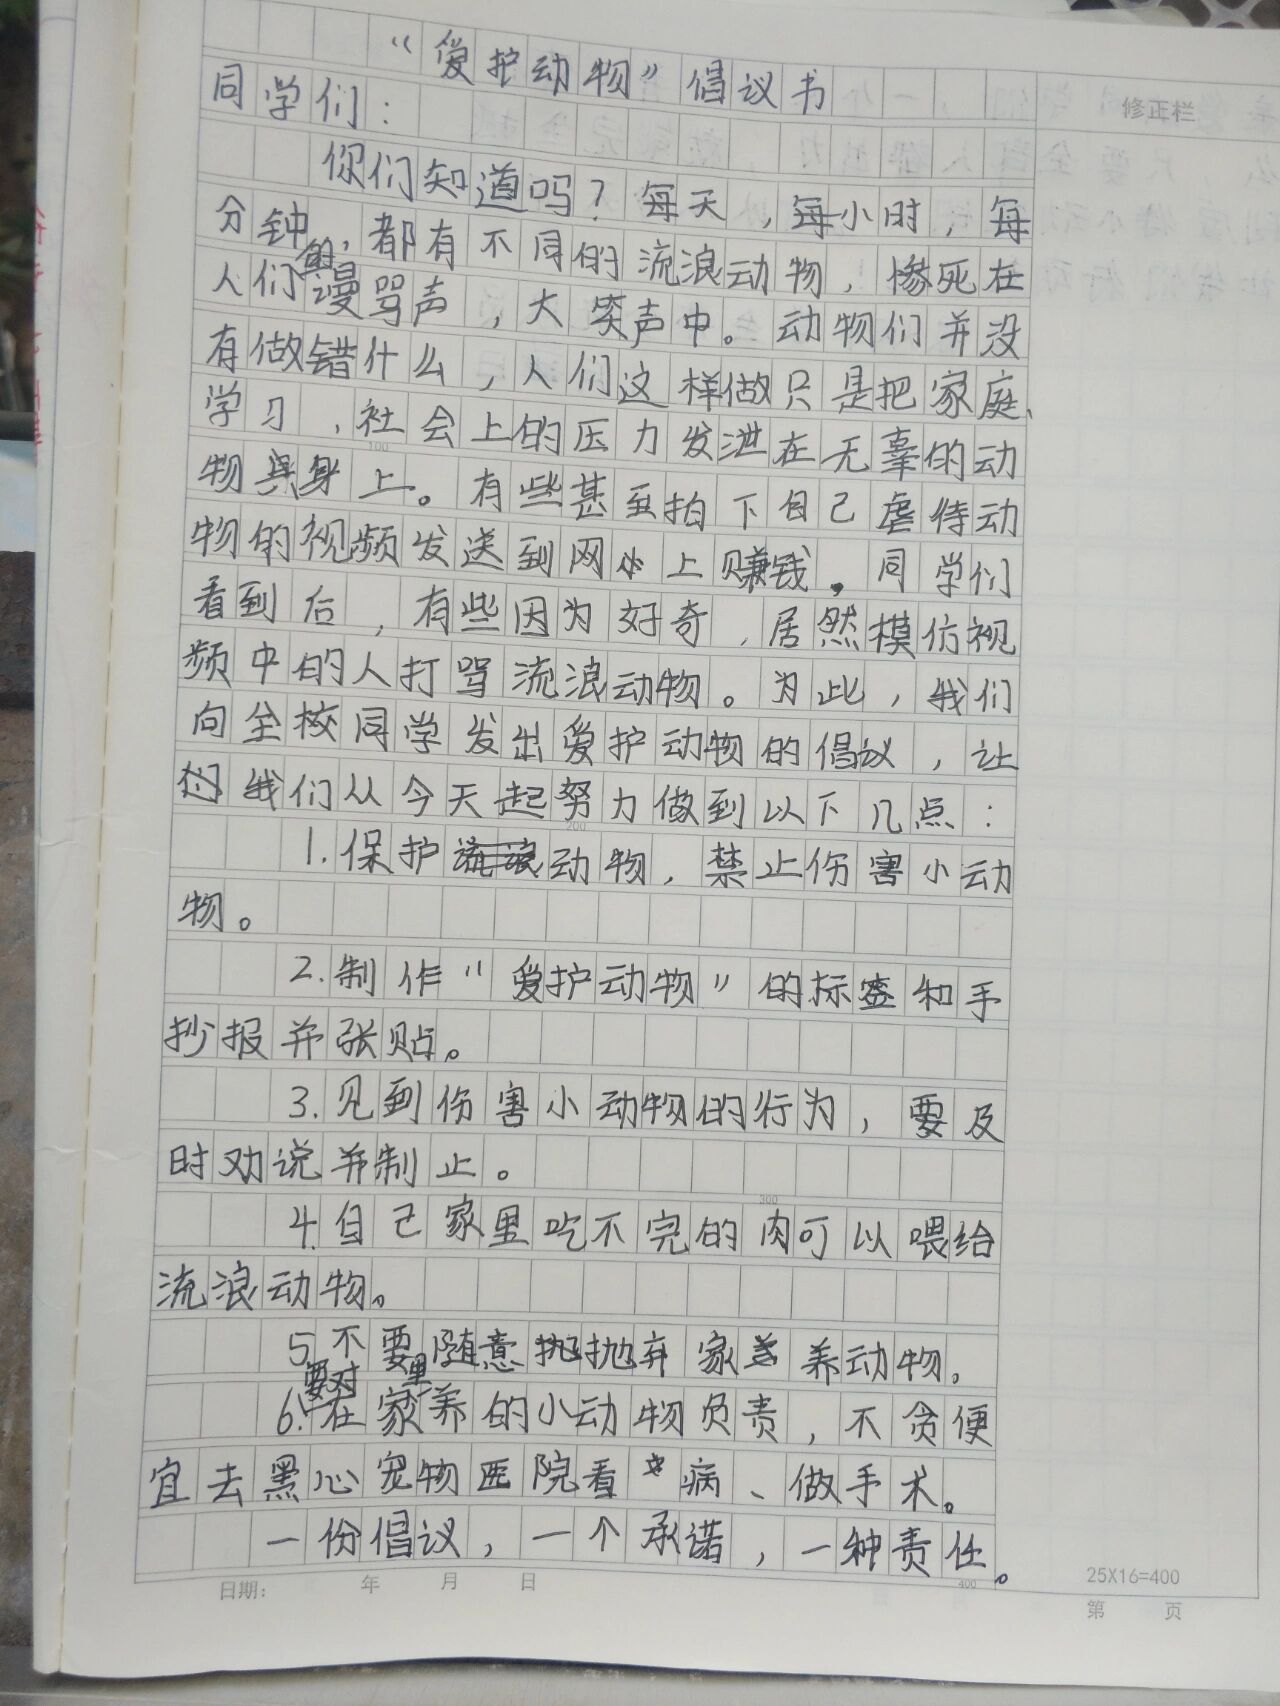 “爱护动物”倡议书
同学们：
你们知道吗？每天，每小时，每
分钟，都有不同的流浪动物，惨死在
人们的谩骂声，大笑声中。动物们并没
有做错什么，人们这样做只是把家庭、
学习、社会上的压力发泄在无辜的动
物身上。有些甚至拍下自己虐待动
物的视频发送到网上赚钱。同学们
看到后，有些因为好奇，居然模仿视
频中的人打骂流浪动物。为此，我们
向全校同学发出爱护动物的倡议，让
我们从今天起努力做到以下几点：
1.保护动物，禁止伤害小动
物。
2.制作“爱护动物”的标签和手
抄报并张贴。
3.见到伤害小动物的行为，要及
时劝说并制止。
4.自己家里吃不完的肉可以喂给
流浪动物。
5.不要随意抛弃家养动物。
6.要对家里养的小动物负责，不贪便
宜去黑心宠物医院看病、做手术。
一份倡议，一个承诺，一种责任。
修正栏
100
200
300
400
日期： 年 月 日
25X16=400
第 页